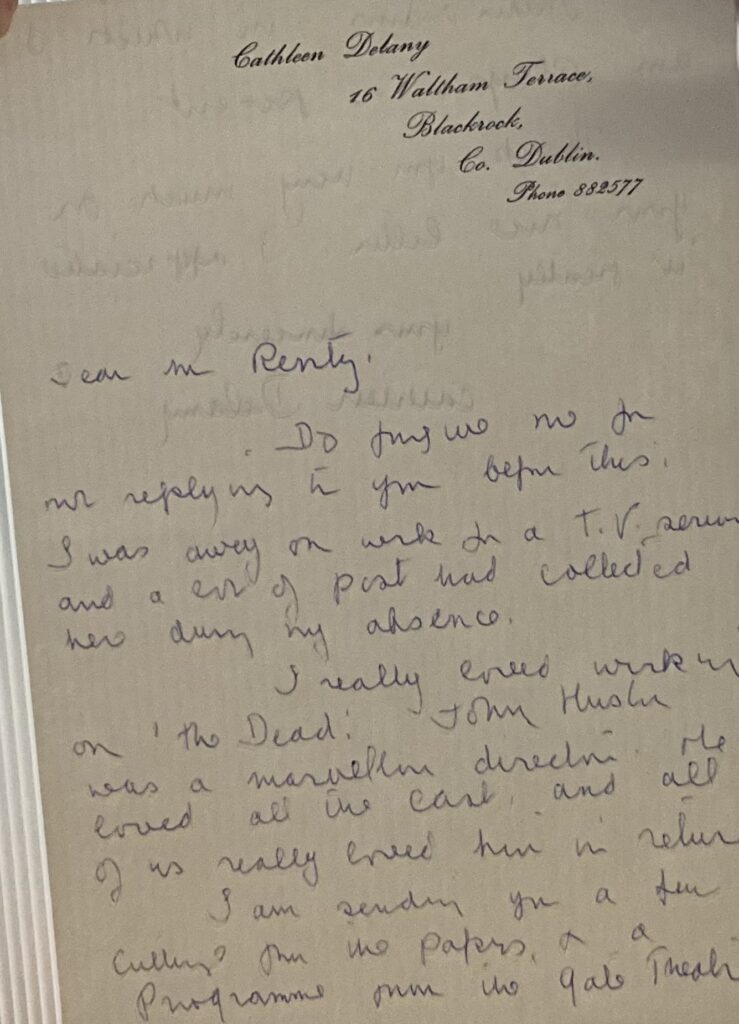 Cathleen Delany
16 Waltham Terrace,
Blackrock,
Co. Dublin.
Phone 882577
Dear Mr
Do forgive me for
not replying to you before this.
I was away on work for a T.V.
and a lot of post had collected
here during my absence.
I really loved workin
on 'the Dead'. John Huston
was a marvellous director. He
loved all the cast, and all
of us really loved him in retur
I am sending you a few
from the papers, & a
Programme from the Gate Theatr